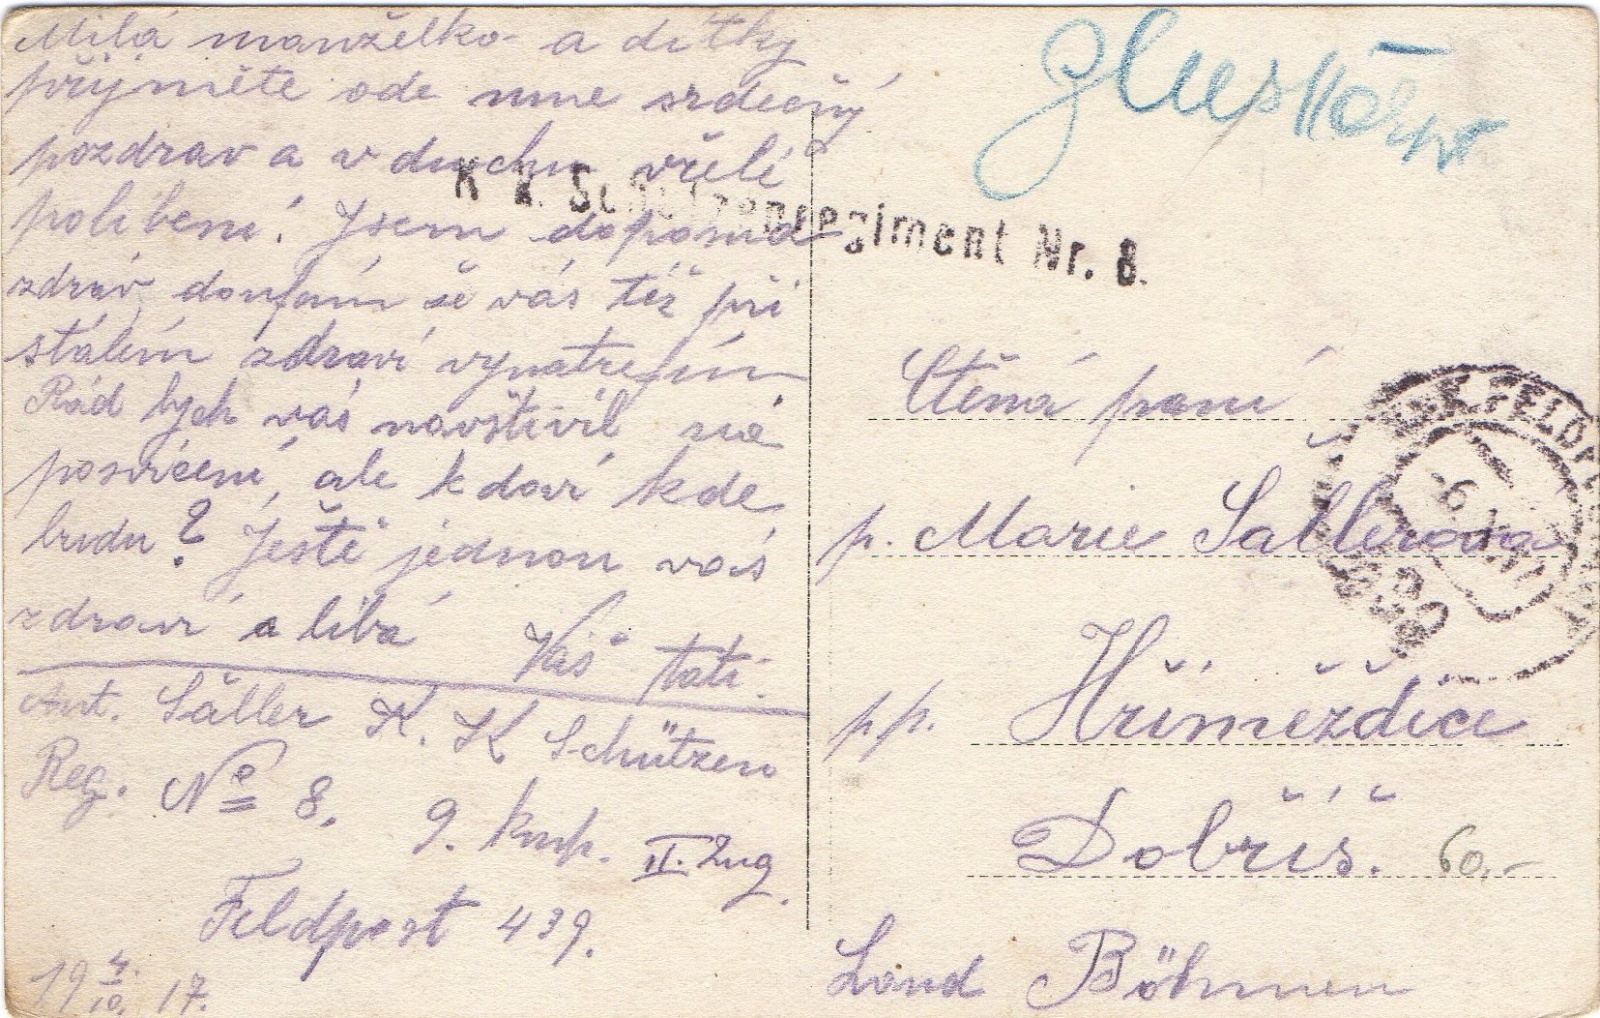 Milá manželko a dítky
přijměte ode mne srdečný
pozdrav a v duchu vřelé
políbení! Jsem doposud
zdráv, doufám že vás též při
stálém zdraví vynatrefím.
Rád bych vás navštívil na
posvícení, ale kdoví kde
budu? Ještě jednou vás
zdraví a líbá
Váš táti.
Ant. Šáller K. K Schützen
Reg. No 8. 9. kmp. II. Zug.
Feldpost 439.
19 4./10. 17.
K. k. Schützenregiment Nr. 8.
Ctěná paní
p. Marie Šallerova
pp. Hříměždice
Dobříš. 60,-
Land Böhmen
K.u.K. FELDPOSTAMT